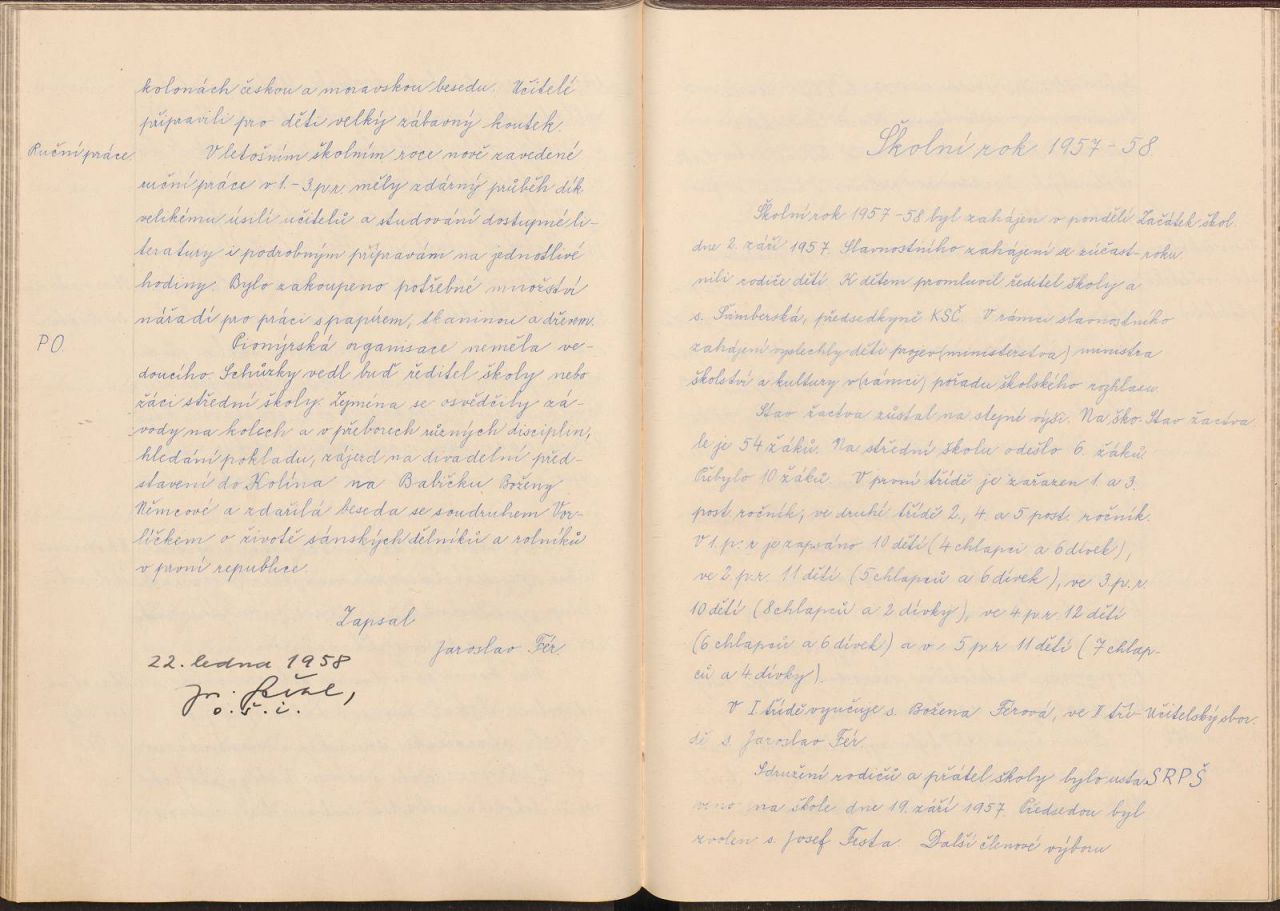 kolonách českou a moravskou besedu. Učitelé
připravili pro děti velký zábavný koutek.
Ruční práce.
V letošním školním roce nově zavedené
ruční práce v 1.-3.p.r. měly zdárný průběh dík
velikému úsilí učitelů a studování dostupné li-
teratury i podrobným přípravám na jednotlivé
hodiny. Bylo zakoupeno potřebné množství
nářadí pro práci s papírem, tkaninou a dřevem.
PO.
Pionýrská organisace neměla ve-
doucího. Schůzky vedl buď ředitel školy nebo
žáci střední školy. Zejména se osvědčily zá-
vody na kolech a v přeborech různých disciplin,
hledání pokladu, zájezd na divadelní před-
stavení do Kolína na Babičku Boženy
Němcové a zdařilá beseda se soudruhem Vor-
líčkem o životě sánských dělníků a rolníků
v první republice.
Zapsal
Jaroslav Fér
22. ledna 1958
o. š. i.
Školní rok 1957-58
Školní rok 1957-58 byl zahájen v pondělí
Začátek škol.
roku
dne 2. září 1957. Slavnostního zahájení se zúčast-
nili rodiče dětí. K dětem promluvil ředitel školy a
s. Šamberská, předsedkyně KSČ. V rámci slavnostního
zahájení vyslechly děti projev (ministerstva) ministra
školství a kultury v (rámci) pořadu školského rozhlasu.
Stav žactva zůstal na stejné výši. Na ško-
Stav žactva
le je 54 žáků. Na střední školu odešlo 6 žáků.
Přibylo 10 žáků. V první třídě je zařazen 1. a 3.
post. ročník, ve druhé třídě 2., 4. a 5 post. ročník.
V 1. p. r. je zapsáno 10 dětí (4 chlapci a 6 dívek),
ve 2. p.r. 11 dětí (5 chlapců a 6 dívek), ve 3. p. r.
10 dětí (8 chlapců a 2 dívky), ve 4. p.r. 12 dětí
(6 chlapců a 6 dívek) a v 5 p.r 11 dětí (7 chlap-
ců a 4 dívky).
V I třídě vyučuje s. Božena Férová, ve II tří-
Učitelský sbor.
dě s. Jaroslav Fér.
Sdružení rodičů a přátel školy bylo usta-
SRPŠ
veno na škole dne 19. září 1957. Předsedou byl
zvolen s. Josef Festa. Další členové výboru